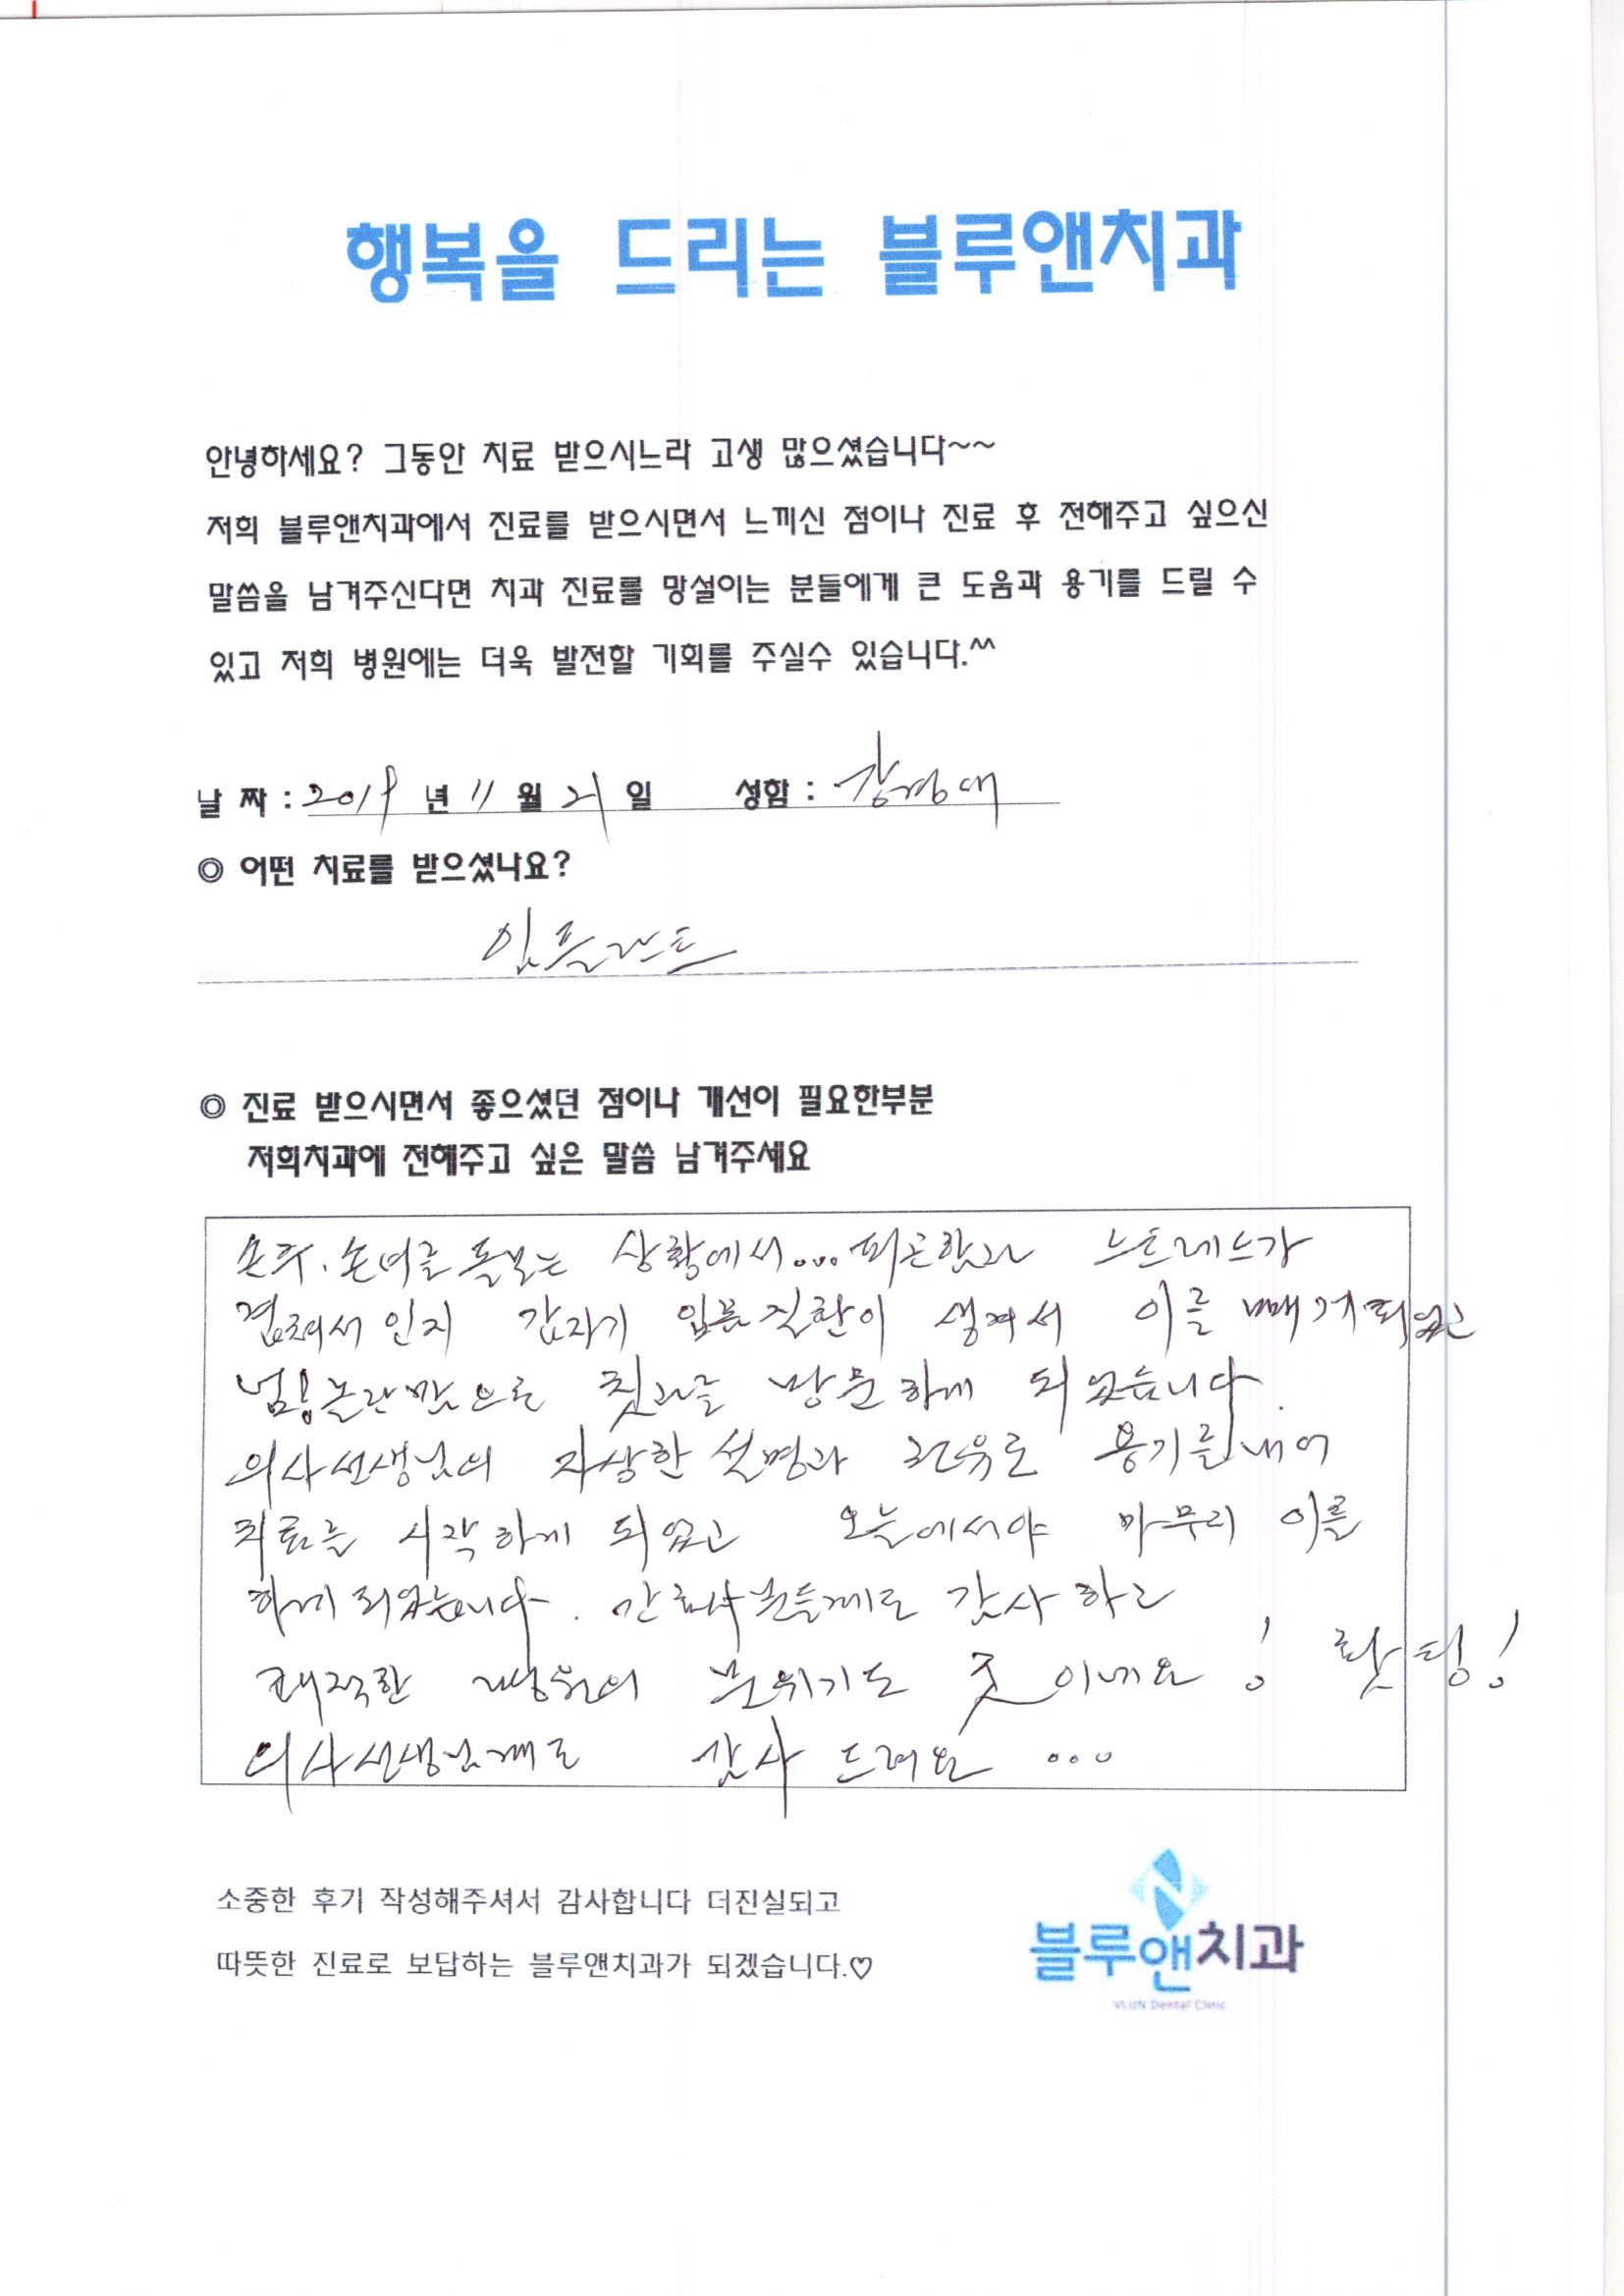 행복을 드리는 블루앤치과
안녕하세요? 그동안 치료 받으시느라 고생 많으셨습니다~~
저희 블루앤치과에서 진료를 받으시면서 느끼신 점이나 진료 후 전해주고 싶으신
말씀을 남겨주신다면 치과 진료를 망설이는 분들에게 큰 도움과 용기를 드릴 수
있고 저희 병원에는 더욱 발전할 기회를 주실수 있습니다.^^
날 짜 : 2019 년 11 월 21 일 성함 :
◎ 어떤 치료를 받으셨나요?
임플란트
◎ 진료 받으시면서 좋으셨던 점이나 개선이 필요한부분
저희치과에 전해주고 싶은 말씀 남겨주세요
손주. 손녀를 돌보는 상황에서... 피곤함과 스트레스가
겹쳐서인지 갑자기 잇몸질환이 생겨서 이를 빼게되었고
넘! 놀란맘으로 칫과를 방문하게 되었습니다.
의사선생님의 자상한 설명과 권유로 용기를내어
치료를 시작하게 되었고 오늘에서야 마무리 이를
하게 되었습니다. 간호사분들께도 감사하고
쾌적한 병원의 분위기도 굿이네요! 홧팅!
의사선생님께도 감사 드려요 ...
소중한 후기 작성해주셔서 감사합니다 더진실되고
따뜻한 진료로 보답하는 블루앤치과가 되겠습니다.♡
블루앤치과
VLUN Dental Clinic